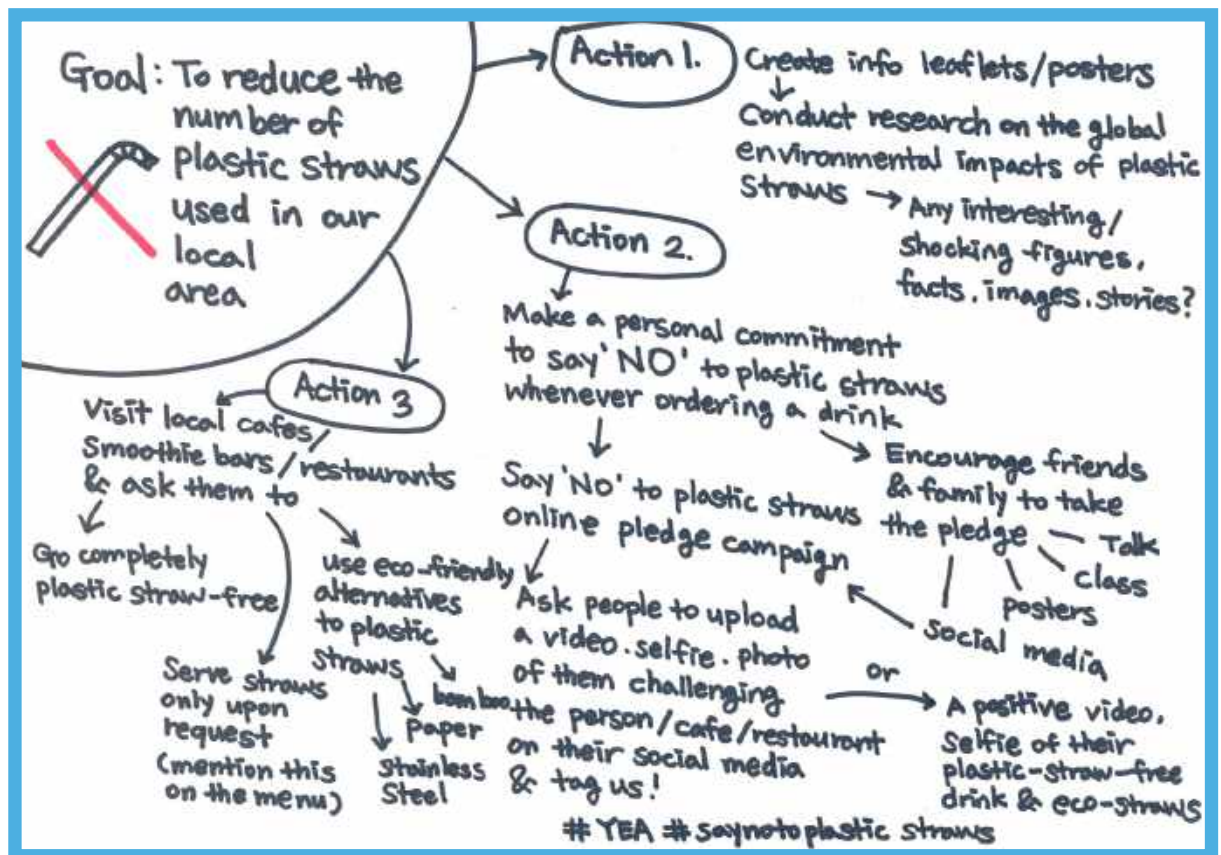 Goal: To reduce the
number of
plastic straws
used in our
local
area
Action 1.
Create info leaflets/posters
Conduct research on the global
environmental impacts of plastic
straws
Any interesting/
shocking figures,
facts, images, stories?
Action 2.
Make a personal commitment
to say 'NO' to plastic straws
whenever ordering a drink
Say 'NO' to plastic straws
online pledge campaign
Encourage friends
& family to take
the pledge
Talk
Class
posters
Social media
Ask people to upload
a video. selfie. photo
of them challenging
the person/cafe/restaurant
on their social media
& tag us!
or
A positive video,
selfie of their
plastic-straw-free
drink & eco-straws
# YEA # saynotoplastic straws
Action 3
Visit local cafes/
Smoothie bars/restaurants
& ask them to
Go completely
plastic straw-free
Serve straws
only upon
request
(mention this
on the menu)
use eco-friendly
alternatives
to plastic
straws
bamboo
Paper
Stainless
Steel